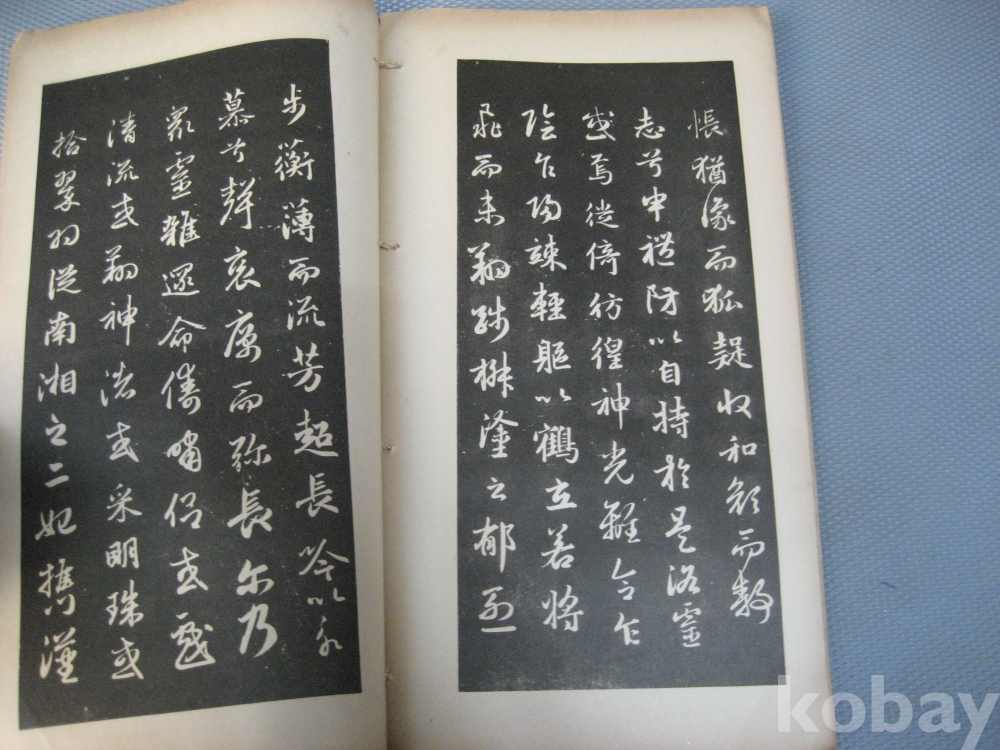 悵猶豫而狐疑收和顏而静
志兮申禮防以自持於是洛靈
感焉徙倚彷徨神光離合乍
陰乍陽竦輕軀以鶴立若將
飛而未翔踐椒塗之郁烈
步蘅薄而流芳超長吟以永
慕兮聲哀厲而弥長尓乃
衆靈雜遝命儔嘯侶或戲
清流或翔神渚或采明珠或
拾翠羽從南湘之二妃攜漢
kobay